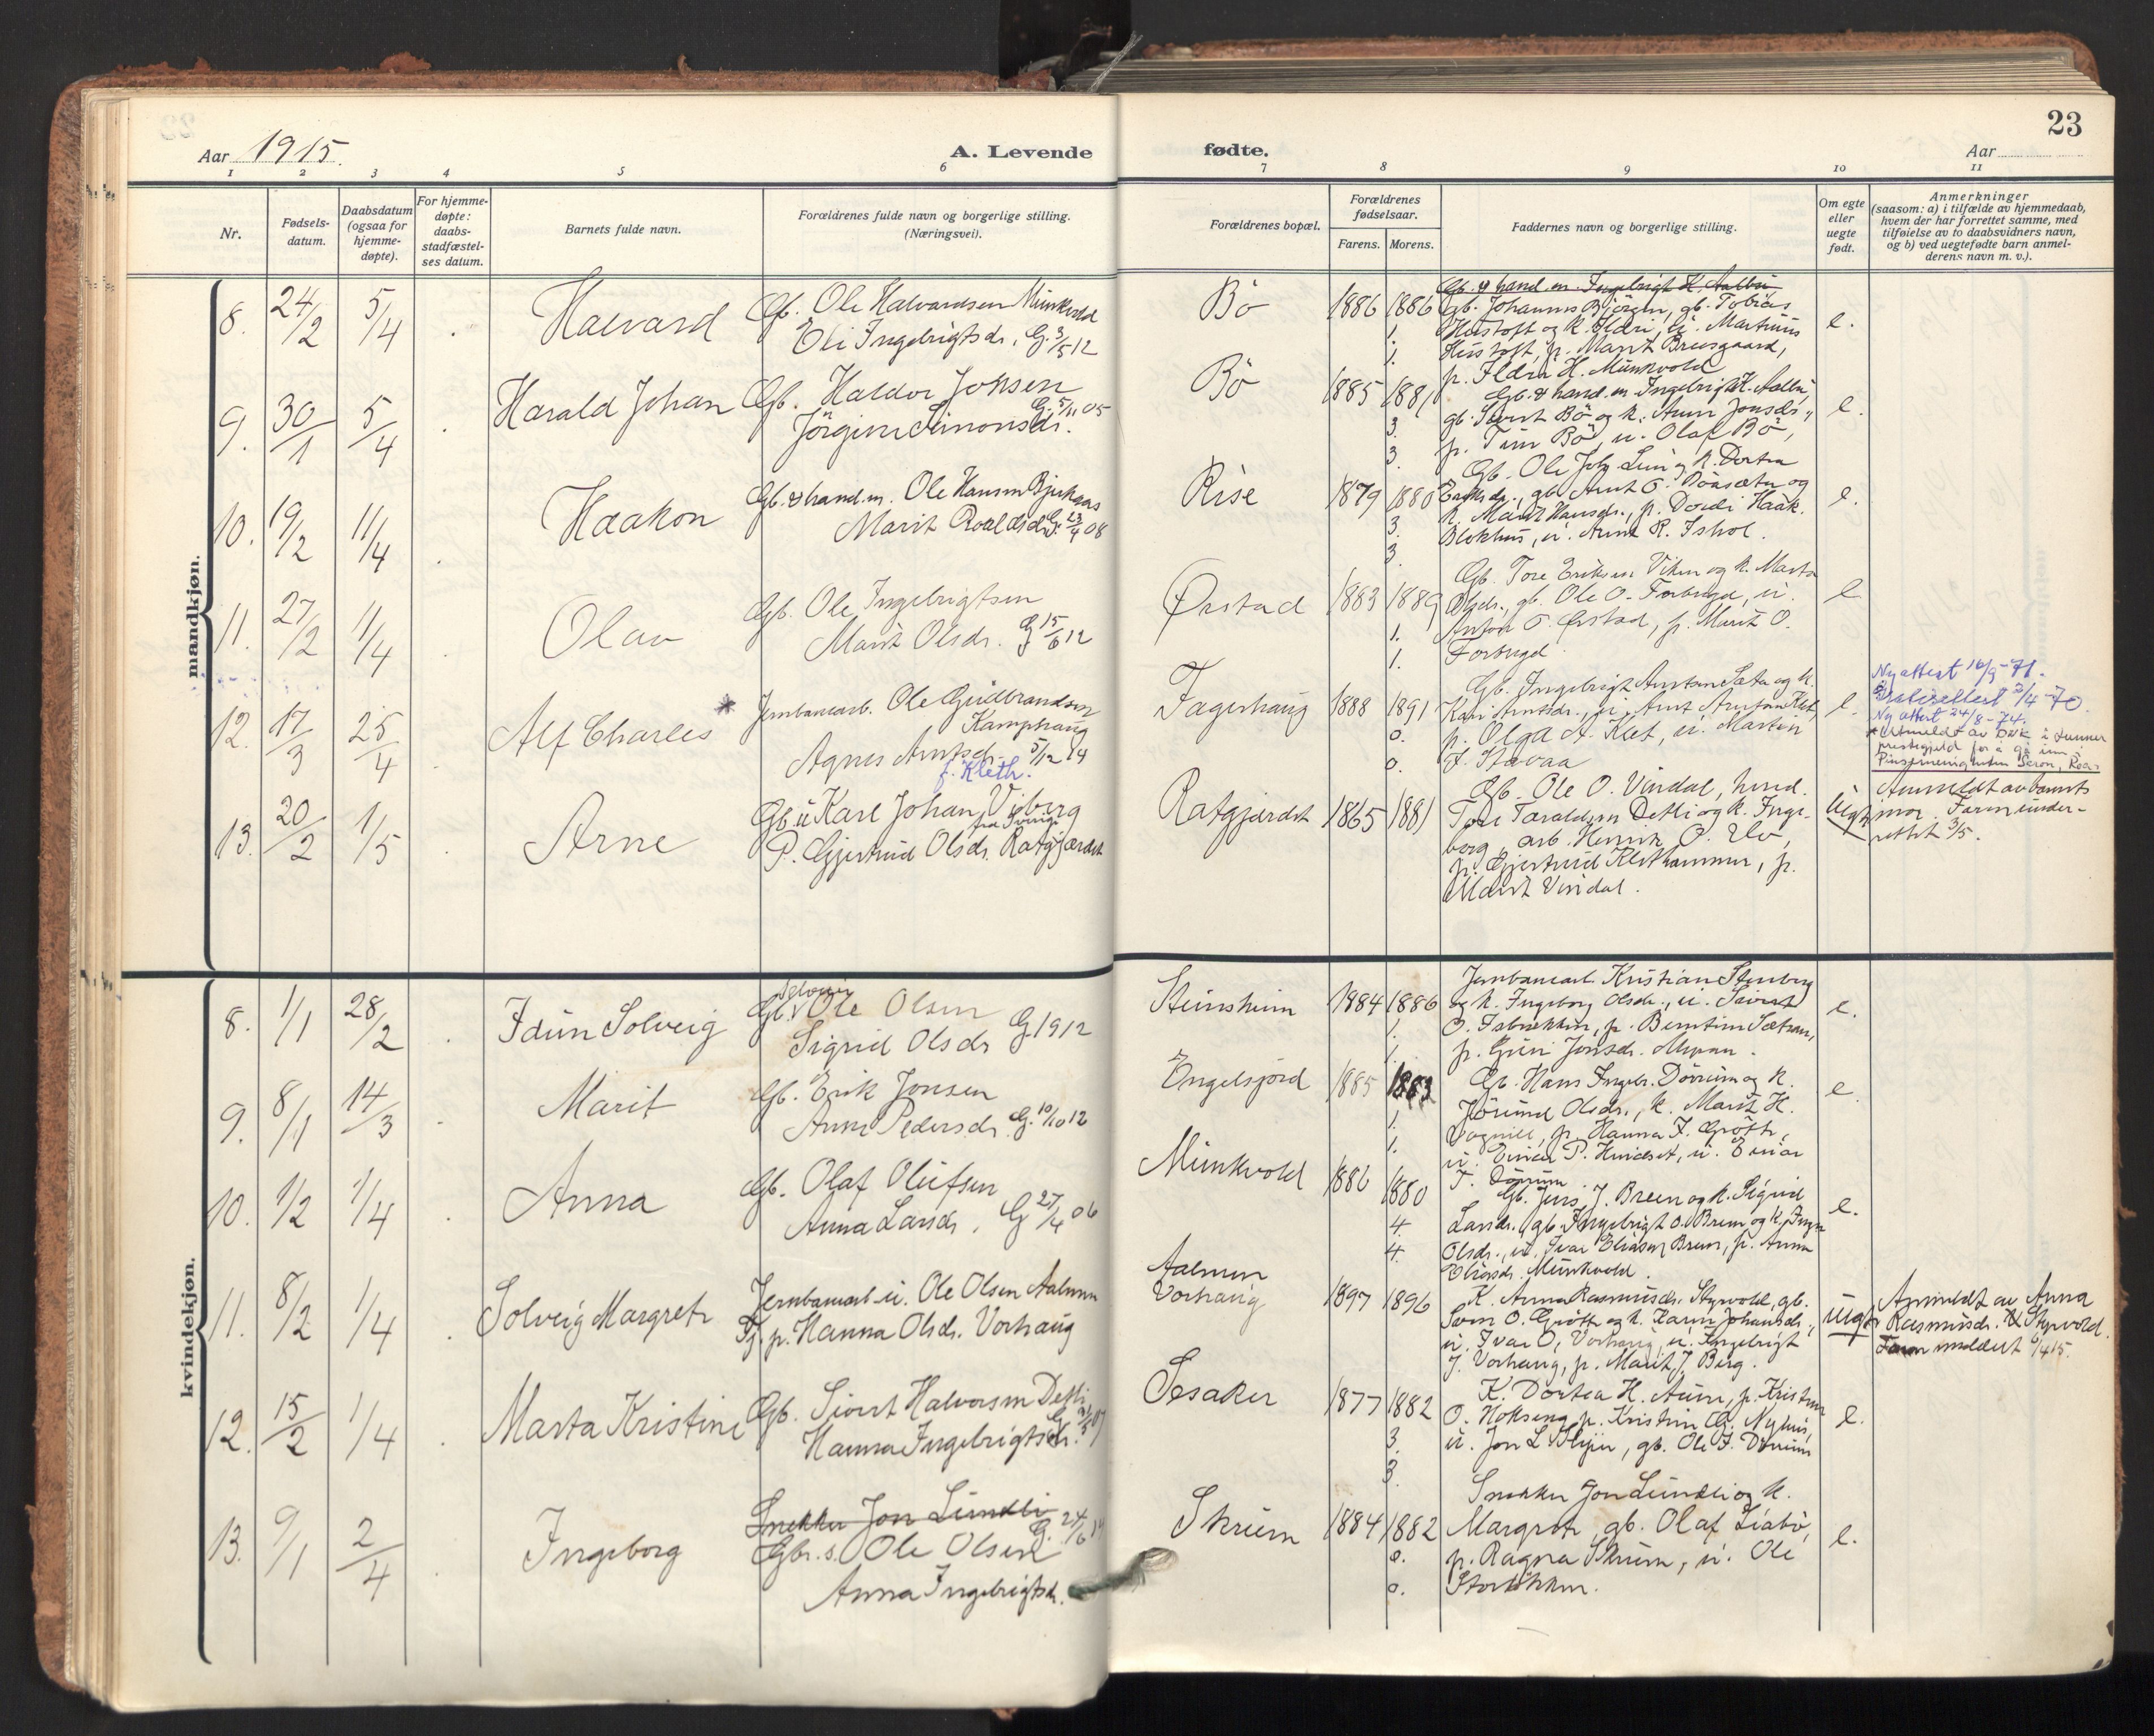 23
Aar 1915.
A. Levende
fødte.
Aar
1 2 3 4 5 6 7 8 9 10 11
Nr.
Fødsels-
datum.
Daabsdatum
(ogsaa for
hjemme-
døpte).
For hjemme-
døpte:
daabs-
stadfæstel-
ses datum.
Barnets fulde navn.
Forældrenes fulde navn og borgerlige stilling.
(Næringsvei).
Forældrenes bopæl.
Forældrenes
fødselsaar.
Farens. Morens.
Faddernes navn og borgerlige stilling.
Om egte
eller
uegte
født.
Anmerkninger
(saasom: a) i tilfælde av hjemmedaab,
hvem der har forrettet samme, med
tilføielse av to daabsvidners navn,
og b) ved uegtefødte barn anmel-
derens navn m. v.).
mandkjøn.
8. 24/2 5/4 . Halvard
Gb. Ole Halvardsen Munkvold
Eli Ingebrigtsdr. G. 3/5 12
Bö 1886 1886
1.
1.
Gb. & hand.m. Ingebrigt K. Aalbu
gb. Johannes Bjørem, gb. Tobias
Hustoft og k. Ildri, u. Martinus
Hustoft, p. Marit Breesgaard,
p. Ildri H. Munkvold
e.
9. 30/1 5/4 . Harald Johan
Gb. Haldor Jonsen
G. 5/11 05
Jörgine Simonsdr.
Bö 1885 1881
3.
3.
Gb. & hand.m. Ingebrigt K. Aalbu,
gb. Sivert Bö og k. Anne Jonsdr.,
p. Bö, u. Olaf Bö,
e.
10. 19/2 11/4 . Haakon
Gb. & hand.m. Ole Hansen Bjerkaas
Marit Roaldsdr. G. 23/4 08
Rise 1879 1880
3.
3.
Gb. Ole Joh. og k. Dortea
gb. Arnt
k. Marit Hansdr., p. Dordi Haak.
Blokhus, u. Arne R. Ishol.
e.
11. 27/2 11/4 . Olav
Gb. Ole Ingebrigtsen
Marit Olsdr. G 15/6 12
Ørstad 1883 1889
1.
1.
Gb. Tore Eriksen Viken og k. Marta
Olsdr., gb. Ole O. Forbregd, u.
Anton O. Ørstad, p. Marit O.
Forbregd.
e
12. 17/3 25/4 Alf Charles
* Jernbanearb. Ole Gudbrandsen
Kamphaug
Agnes Arntsdr. 5/12 14
f. Kleth.
Fagerhaug 1888 1891
0.
0.
Gb. Ingebrigt Arntsen Sæter og k.
Kari Arntsdr., u. Arnt Arntsen Klet,
p. Olga A. Klet, u. Martin
J. Stavaa
e.
Ny attest 16/9-71.
2/4-70
Ny attest 24/8-74.
* Utmeldt av DNK i Lunner
prestegjeld for å gå inn i
Pinsemenigheten Saron, Roa.
13. 20/2 1/5 . Arne
Gb. u. Karl Johan Viberg
fra Sverige
P. Gjertrud Olsdr. Ratgjærdet
Ratgjærdet 1865 1881
Gb. Ole O. Vindal,
Tore Taraldsen Detli og k. Inge-
borg, arb. Henrik O. Vo,
p. Gjertrud Klethammer, p.
Marit Vindal.
Uegt.
Anmeldt av barnets
mor. Faren under-
rettet 3/5.
kvindekjøn.
8. 1/1 28/2 . Idun Solveig
Selveier
Gb. Ole Olsen
Sigrid Olsdr G 1912
Steinsheim 1884 1886
1.
1.
Jernbanearb. Kristian Stenberg
og k. Ingeborg Olsdr., u. Sivert
O. Isbrekken, p. Berntine Sætran,
p. Guri Jonsdr. Moan.
e.
9. 8/1 14/3 . Marit
Gb. Erik Jonsen
Anne Pedersdr. G. 10/10 12
Engelsjord 1885 1883
1.
1.
Gb. Hans Ingebr. Dörrum og k.
Jörund Olsdr., k. Marit H.
Vognill, p. Hanna I. Gröth,
u. Einar P. Hindset, u. Einar
I. Dörrum.
e.
10. 1/2 1/4 . Anna
Gb. Olaf Olufsen
Anna Larsdr. G 27/4 06
Munkvold 1886 1880
4.
4.
Gb. Jens J. Breen og k. Sigrid
Larsdr., gb. Ingebrigt O. Breen og k. Inger
Olsdr., u. Ivar Eliasen Breen, p. Anne
Eliasdr. Munkvold.
e.
11. 8/2 1/4 . Solveig Margrete
Jernbanearb. u. Ole Olsen Aalmen
Tj. p. Hanna Olsdr. Vorhaug
Aalmen
Vorhaug 1897 1896
K. Anna Rasmusdr. Styrvold, gb.
Sven O. Gröth og k. Karen Johansdr.,
u. Ivar O. Vorhaug, u. Ingebrigt
J. Vorhaug, p. Marit J. Berg.
uegt
Anmeldt av Anna
Rasmusdr. Styrvold.
Faren meldert 6/4 15.
12. 15/2 1/4 . Marta Kristine
Gb. Sivert Halvorsen Detli
Hanna Ingebrigtsdr.
Sesaker 1877 1882
3.
3.
K. Dortea H. Aune, p. Kristine
O. Hokseng, p. Kristine G. Nyhus,
u. Jon L. Flyen, gb. Ole I. Dörrum
e.
13. 9/1 2/4 . Ingeborg
Snekker Jon Lundli
G. 24/6 14
Gbr.s. Ole Olsen
Anna Ingebrigtsdr.
Skrum 1884 1882
0.
0.
Snekker Jon Lundli og k.
Margrete, gb. Olaf Liabö,
p. Ragna Skrum, u. Ole
Storløkken.
e.